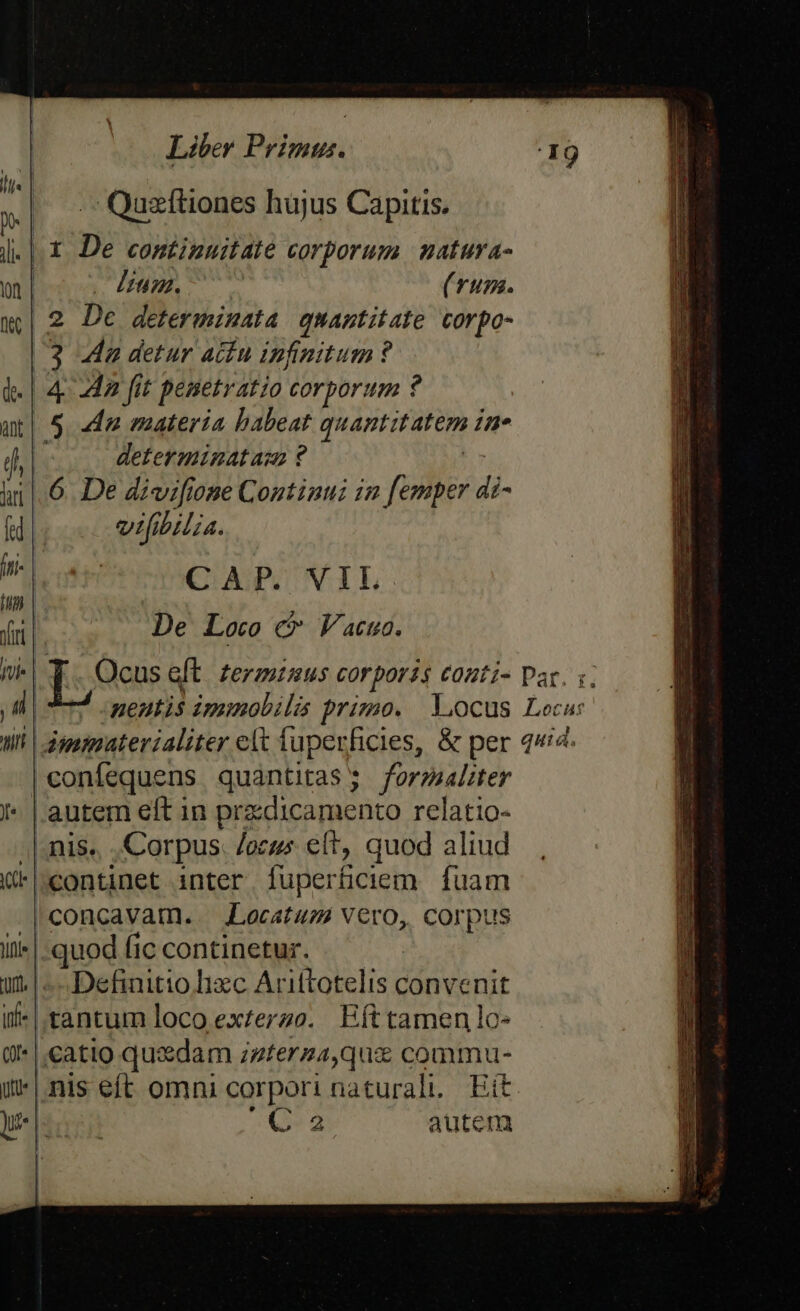 Liber Primus. 19
Quæſtiones hujus Capitis.
1 De continuitate corporum natura-
lium. (rum.
2 De determinata quantitate corpo-
3 An detur actu infinitum ?
4 An ſit penetratio corporum ?
5 An materia habeat quantitatem in-
determinatam ?
6 De diviſione Continui in ſemper di-
viſibilia.
CAP. VII.
De Loco & Vacuo.
LOcus eſt terminus corporis conti- Par. 1.
nentis immobilis primo. Locus Locus
immaterialiter eſt ſuperficies, & per quid.
conſequens quantitas; formaliter
autem eſt in prædicamento relatio-
nis. Corpus locus eſt, quod aliud
continet inter ſuperficiem ſuam
concavam. Locatum vero, corpus
quod ſic continetur.
Definitio hæc Ariſtotelis convenit
tantum loco externo. Eſt tamen lo-
catio quædam interna, quæ commu-
nis eſt omni corpori naturali. Eſt
C 2 autem